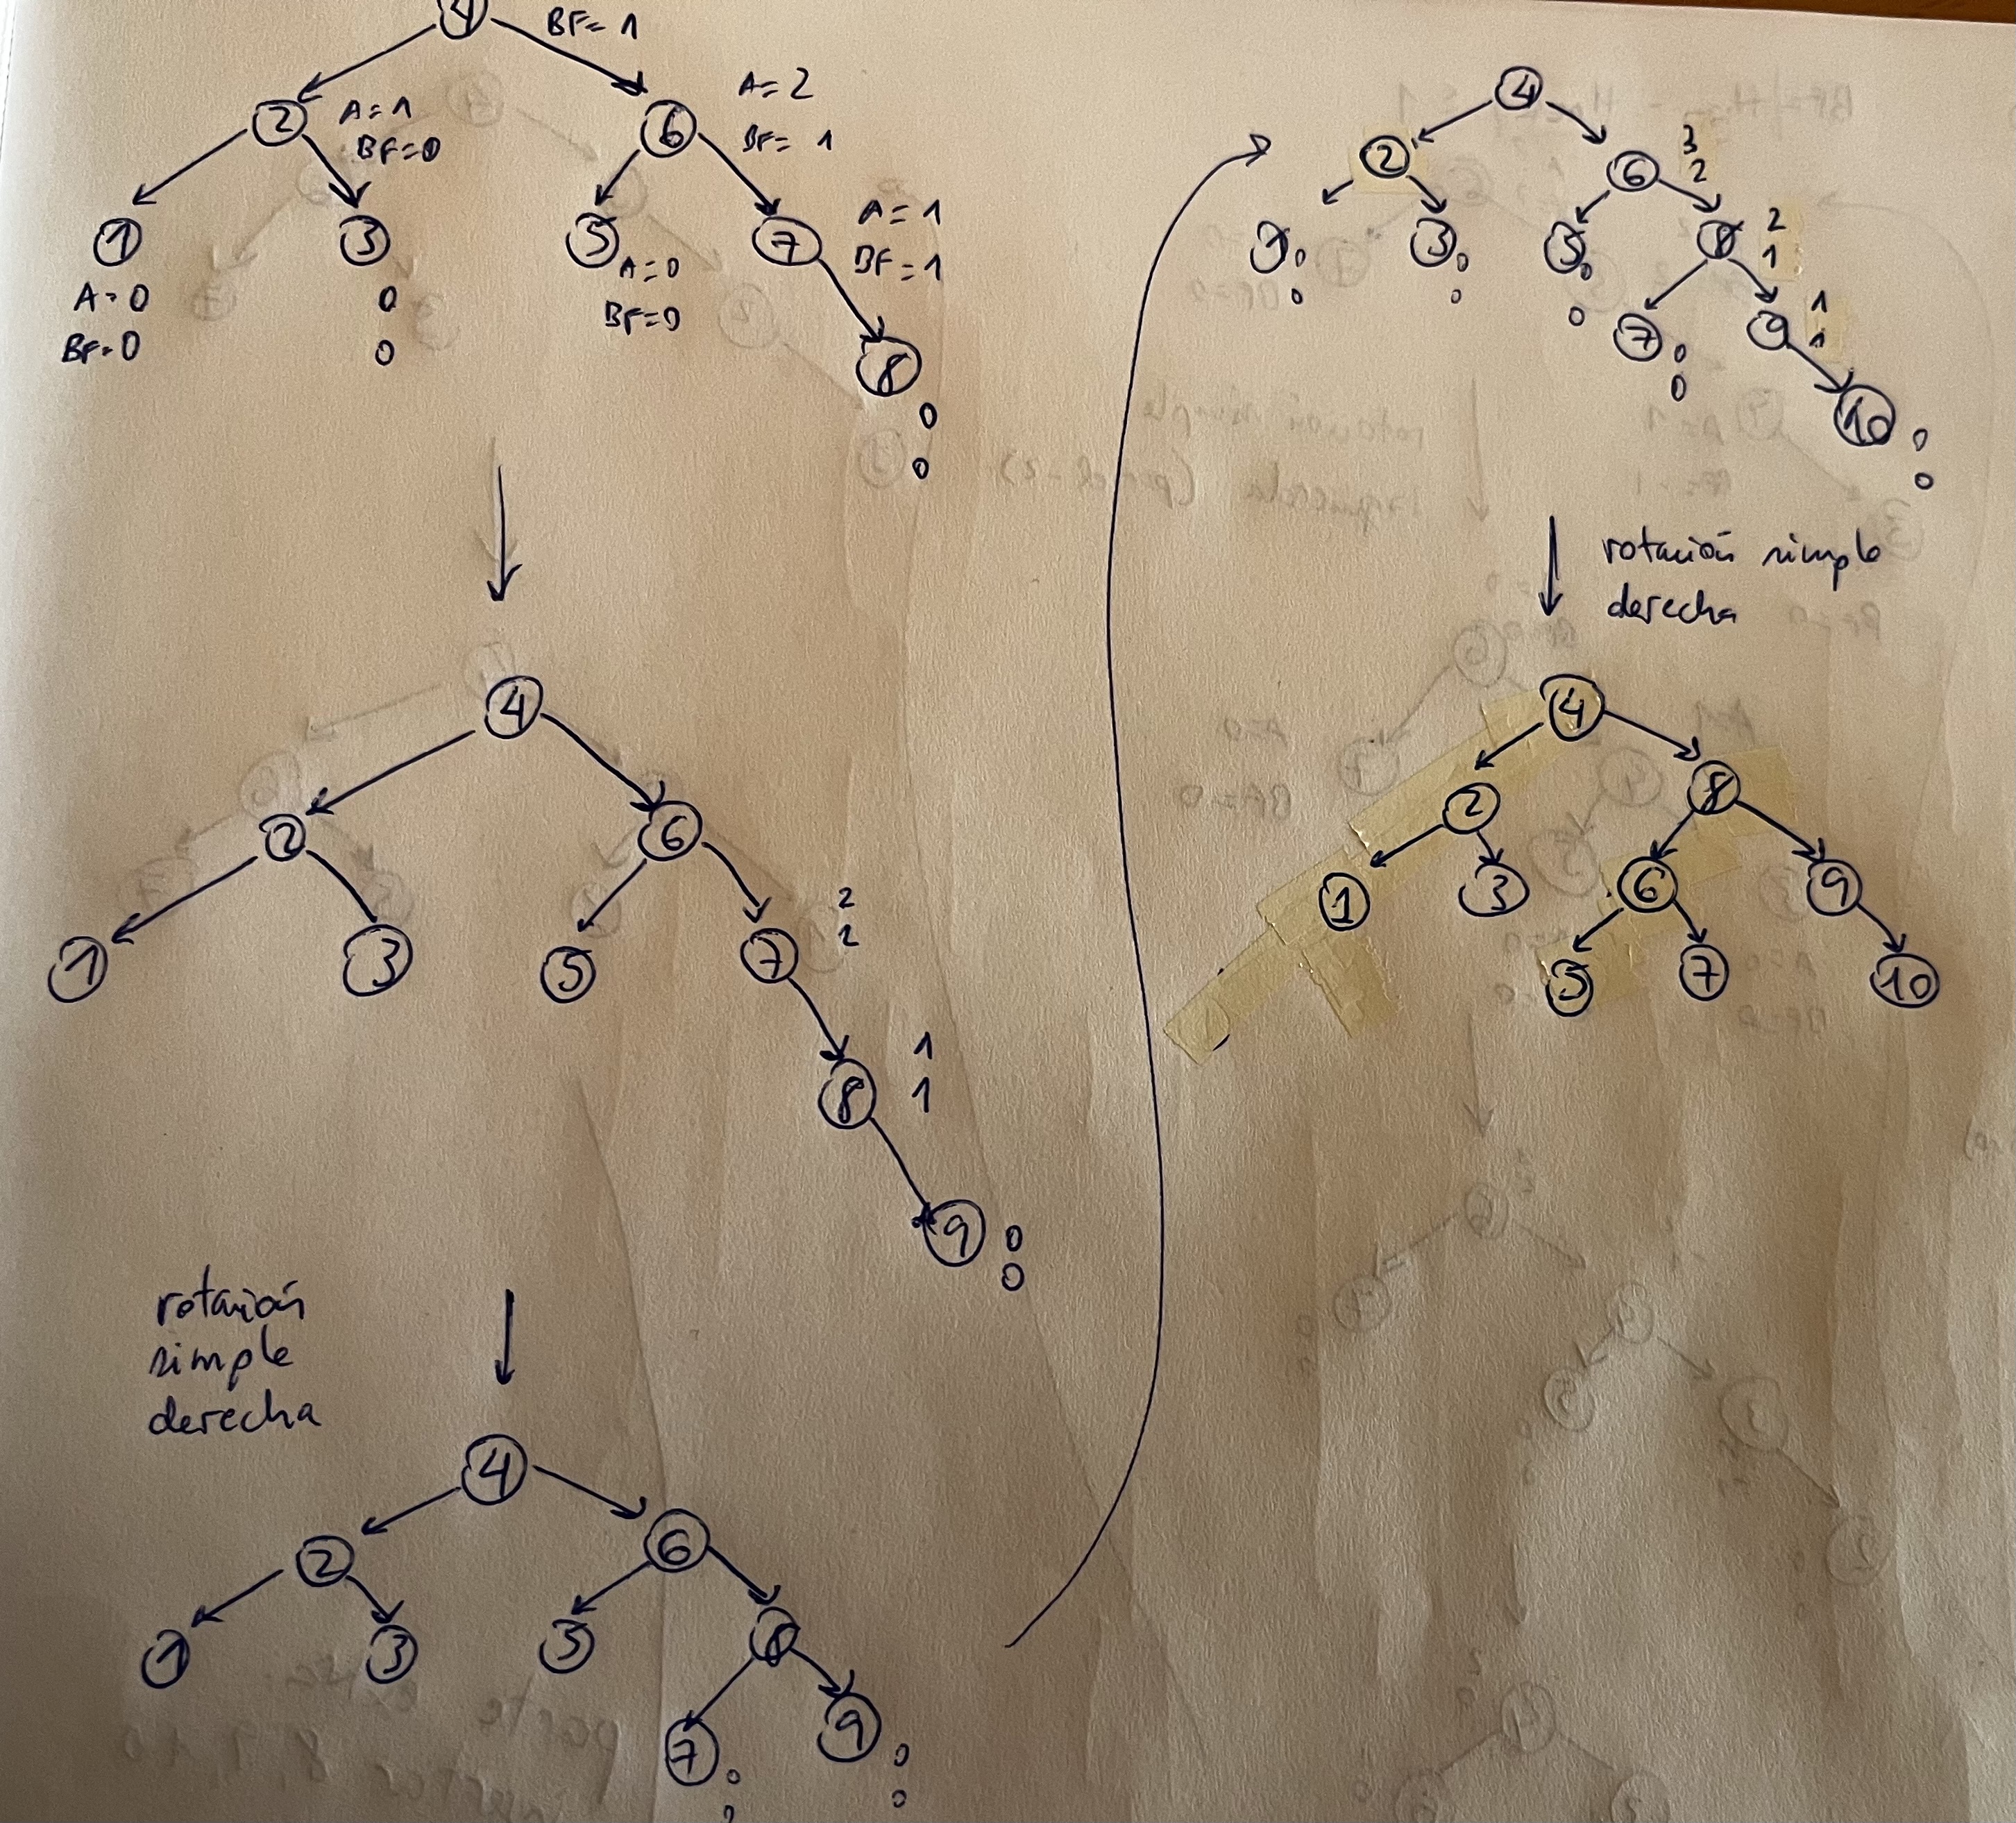 4 BF= 1
2 A=1 BF=0
6 A=2 BF= 1
1 A=0 BF=0
3 0 0
5 A=0 BF=0
7 A=1 BF=1
8 0 0
4
2 6
1 3 5 7 2 2
8 1 1
9 0 0
rotación
simple
derecha
4
2 6
1 3 5 8
7 0
9 0 0
4
2 6 3 2
0 0
3 0 0
0 0
2 1
7 0 0
9 1 1
10 0 0
rotación simple
derecha
4
2 8
1 3 6 9
5 7 10